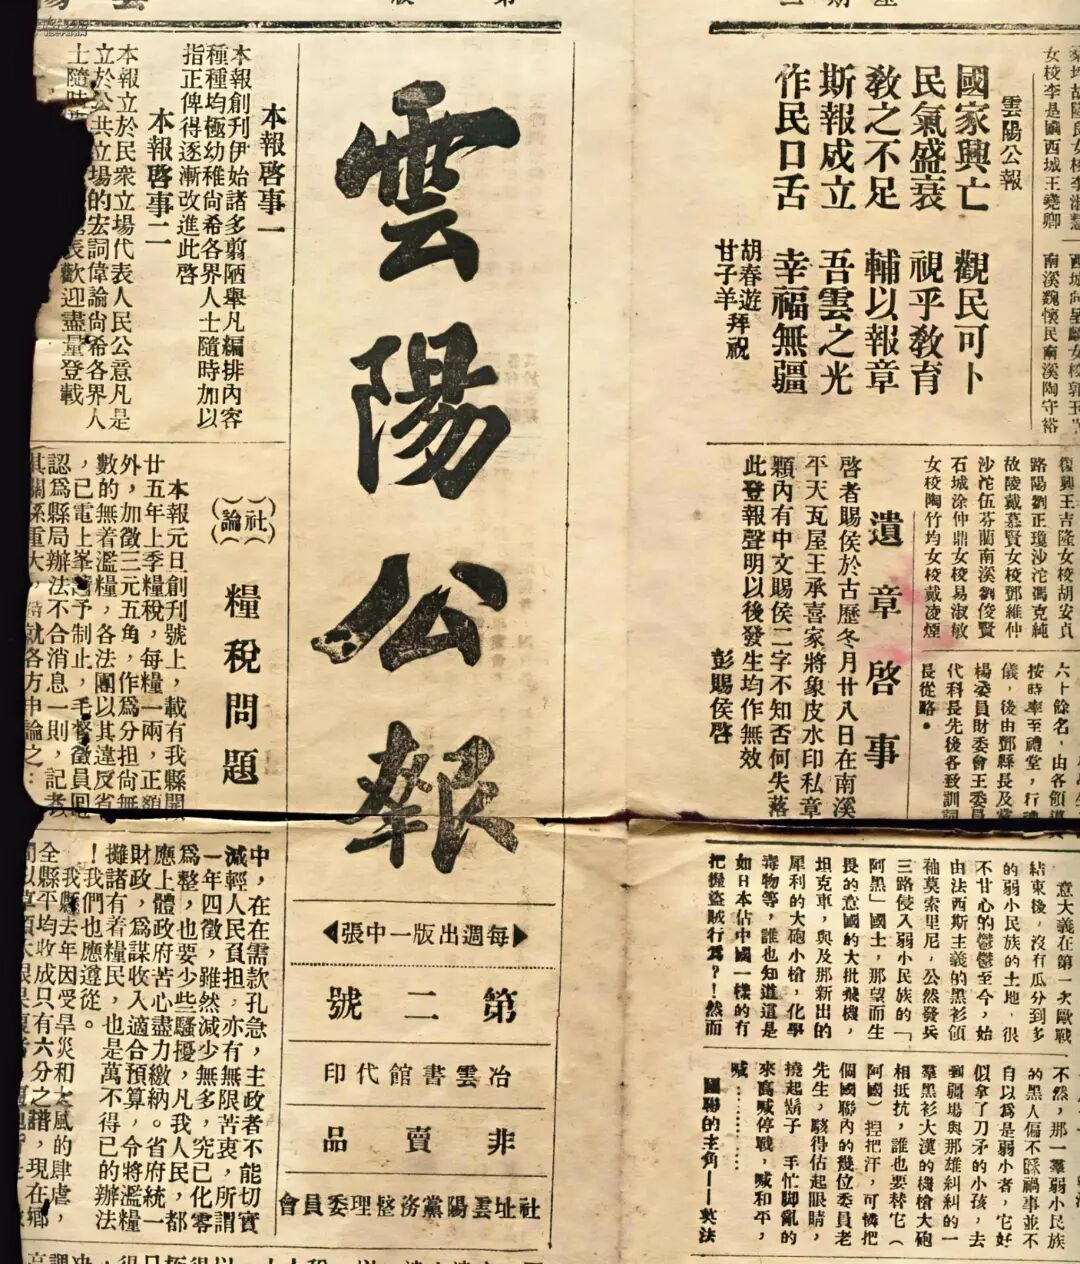 女校李是顒西城王堯卿
南溪魏懷民南溪陶守裕
雲陽公報
國家興亡 觀民可卜
民氣盛衰 視乎敎育
敎之不足 輔以報章
斯報成立 吾雲之光
作民口舌 幸福無疆
胡春遊
甘子羊
拜祝
復興王吉隆女校胡安貞
路陽劉正瓊沙沱馮克純
故陵戴慕賢女校鄧維仲
沙沱伍芬蘭南溪劉俊賢
石城涂仲鼎女校易淑敏
女校陶竹均女校戴凌煙
六十餘名，由各領導員
按時率至禮堂，行禮
儀，後由鄧縣長及黨
楊委員財委會王委員
代科長先後各致訓詞
長從略。
遺章啓事
啓者賜侯於古歷冬月廿八日在南溪
平天瓦屋王承喜家將象皮水印私章
顆內有中文賜侯二字不知否何失落
此登報聲明以後發生均作無效
彭賜侯啓
意大義在第一次歐戰
結束後，沒有瓜分到多
的弱小民族的土地，很
不甘心的鬱鬱至今，始
由法西斯主義的黑衫領
袖莫索里尼，公然發兵
三路侵入弱小民族的「
阿黑」國土，那望而生
畏的意國的大批飛機，
坦克車，與及那新出的
犀利的大砲小槍，化學
毒物等，誰也知道這是
如日本佔中國一樣的有
把握盜賊行爲？！然而
不然，那一羣弱小民族
的黑人偏不睬禍事並不
自以爲是弱小者，它好
似拿了刀矛的小孩，去
到疆場與那雄糾糾的一
羣黑衫大漢的機槍大砲
相抵抗，誰也要替它（
阿國）揑把汗，可憐把
個國聯內的幾位委員老
先生，駭得佔起眼睛，
撓起鬍子 手忙脚亂的
來高喊停戰，喊和平，
喊………
國聯的主角——英法
雲陽公報
每週出版一中張
第二號
冶雲書館代印
非賣品
社址雲陽黨務整理委員會
本報啓事一
本報創刊伊始諸多翦陋舉凡編排內容
種種均極幼稚尙希各界人士隨時加以
指正俾得逐漸改進此啓
本報啓事二
本報立於民衆立場代表人民公意凡是
立於公共立場的宏詞偉論尙希各界人
士隨時
表歡迎盡量登載
社論
糧稅問題
本報元日創刊號上，載有我縣開
廿五年上季糧稅，每糧一兩，正額
外，加徵三元五角，作爲分担尙無
數的無着濫糧，各法團以其違反省
，已電上峯請予制止，毛督徵員回
認爲縣局辦法不合消息一則，記者
其關係重大，特就各方申論之：
中，在在需款孔急，主政者不能切實
減輕人民負担，亦有無限苦衷，所謂
一年四徵，雖然減少無多，究已化零
爲整，也要少些騷擾，凡我人民，都
應上體政府苦心盡力繳納。省府統一
財政，爲謀收入適合預算，令將濫糧
攤諸有着糧民，也是萬不得已的辦法
！我們也應遵從。
我縣去年因受旱災和大風的肆虐，
全縣平均收成只有六分之譜，現在鄉